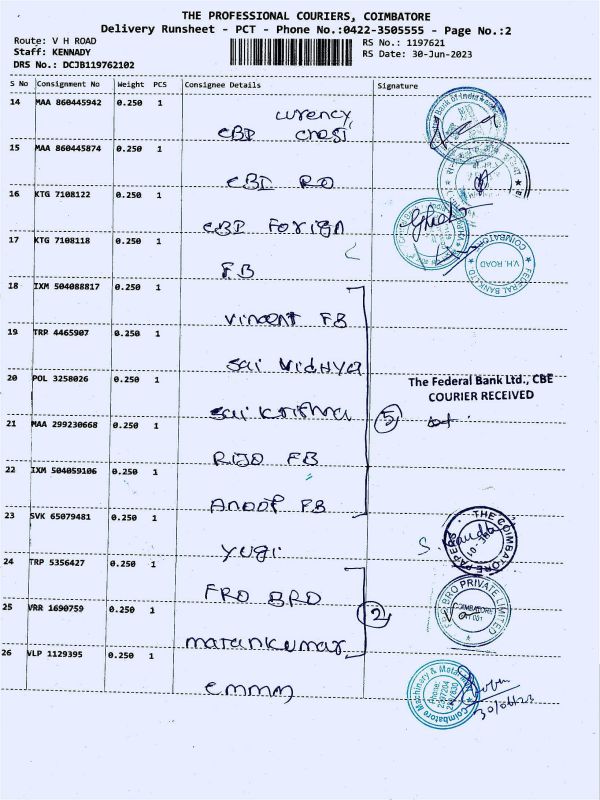 THE PROFESSIONAL COURIERS, COIMBATORE
Delivery Runsheet - PCT - Phone No.:0422-3505555 - Page No.:2
Route: V H ROAD RS No.: 1197621
Staff: KENNADY RS Date: 30-Jun-2023
DRS No.: DCJB119762102
S No Consignment No Weight PCS Consignee Details Signature
14 MAA 860445942 0.250 1
urency
CBI chest
15 MAA 860445874 0.250 1
CBI RO
16 KTG 7108122 0.250 1
CBI Forign
17 KTG 7108118 0.250 1
FB
V.H. ROAD
FEDERAL BANK LTD. COIMBATORE
18 IXM 504088817 0.250 1
Vincent FB
19 TRP 4465907 0.250 1
Sai Vidhya
20 POL 3258026 0.250 1
The Federal Bank Ltd., CBE
COURIER RECEIVED
Sai Krishna
5
21 MAA 299230668 0.250 1
RIJO FB
22 IXM 504059106 0.250 1
Anoop FB
23 SVK 65079481 0.250 1
THE COIMBATORE PAPERS
Yugi
24 TRP 5356427 0.250 1
FRO BRO
BRO PRIVATE LIMITED
COIMBATORE
2
25 VRR 1690759 0.250 1
marankumar
26 VLP 1129395 0.250 1
Coimbatore Machinery & Metal
Phone:
2397204
2397830
30/06/23
cmmm